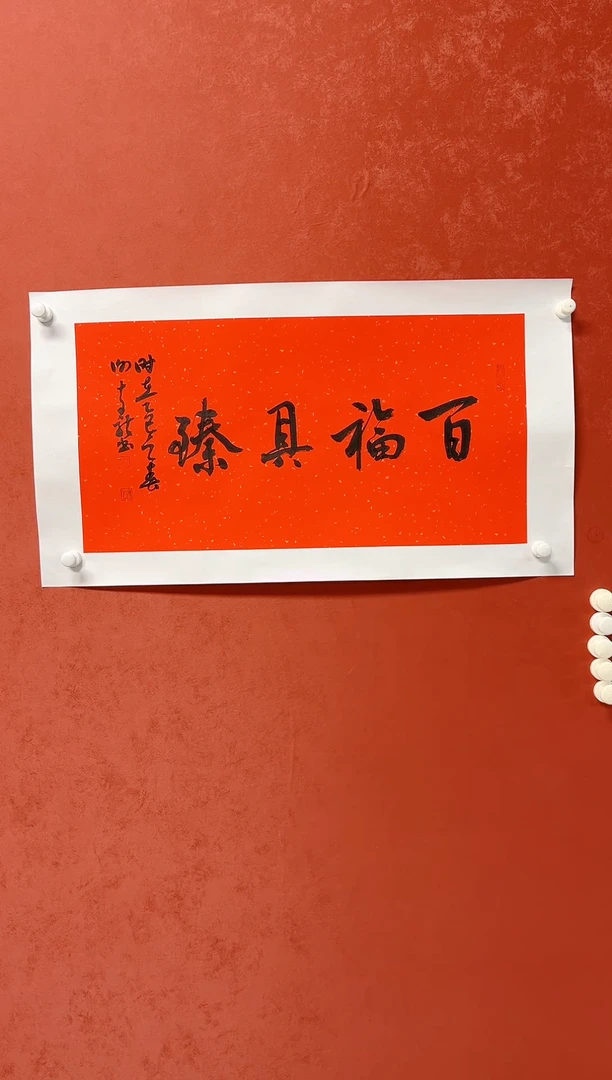 百福具臻
时在乙巳之春